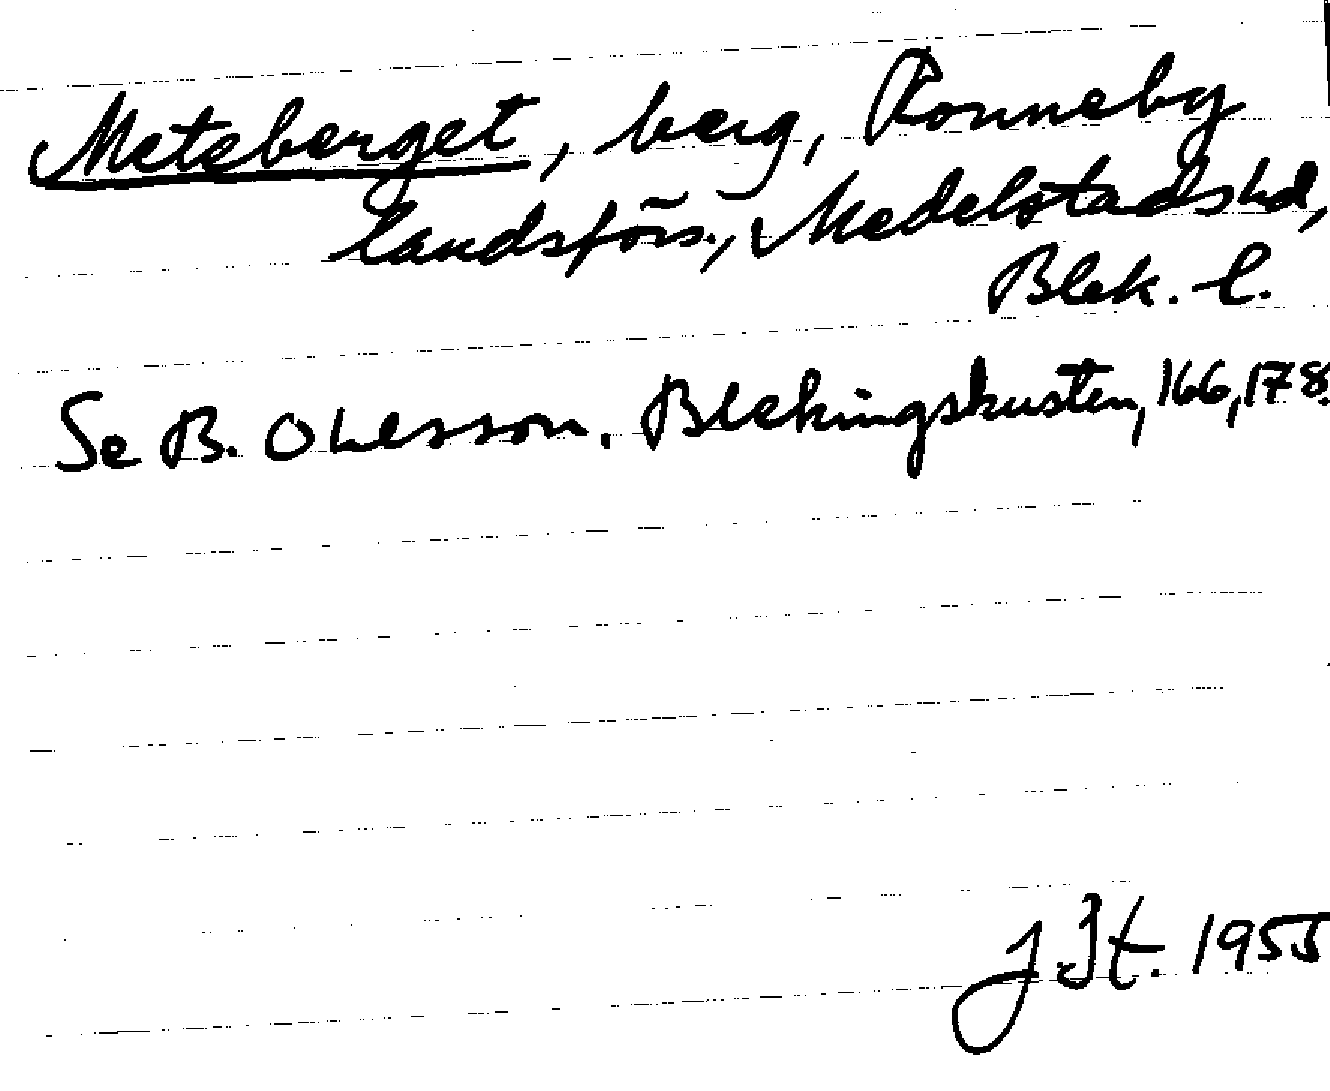 Meteberget, berg, Ronneby
landsförs., Medelstads hd,
Blek. l.
Se B. Ohlsson, Blekingskusten, 166, 178.
J. It. 1955